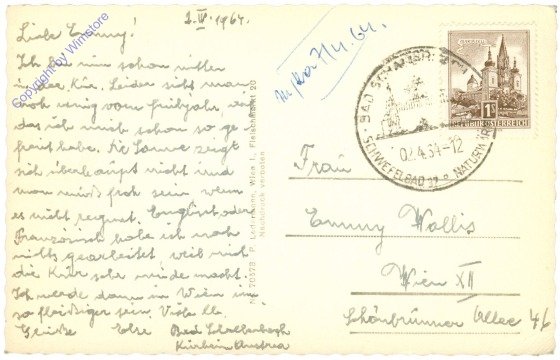 2.IV.1964.
Liebe Emmy!
Ich bin nun schon mitten
in der Kür. Leider sieht man
noch wenig vom Frühjahr, auf
das ich mich schon so ge
freut habe. Die Sonne zeigt
sich überhaupt nicht und
man muss froh sein wenn
es nicht regnet. Englisch oder
Französisch habe ich noch
nichts gearbeitet weil mich
die Kür sehr müde macht.
Ich werde dann in Wien um
so fleißiger sein. Viele lb.
Grüße Else Bad Schallerbach
Kurheim Austria
Copyright by Winstore
P. Ledermann, Wien I, Fleischmarkt 20
Nachdruck verboten
7/4.64.
BAD
SCHWEFELBAD 37° NATURWARM
02.4.64-12
1S
REPUBLIK ÖSTERREICH
Frau
Emmy Wallis
Wien XII
Schönbrunner Allee 46